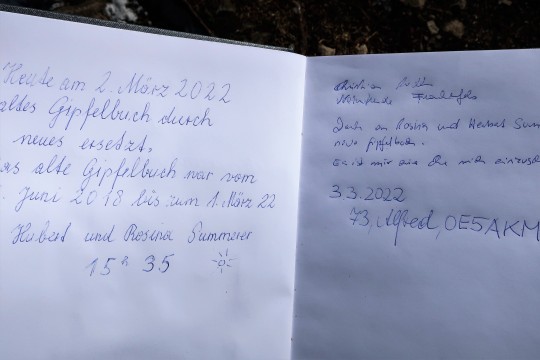 Heute am 2. März 2022
altes Gipfelbuch durch
neues ersetzt,
as alte Gipfelbuch war vom
. Juni 2018 bis zum 1. März 22
Hubert und Rosina Summerer
15h 35
Christian
Dank an Rosina und Herbert Sum
neue Gipfelbuch.
Es ist mir eine Ehre mich einzu
3.3.2022
73, Alfred, OE5AKM